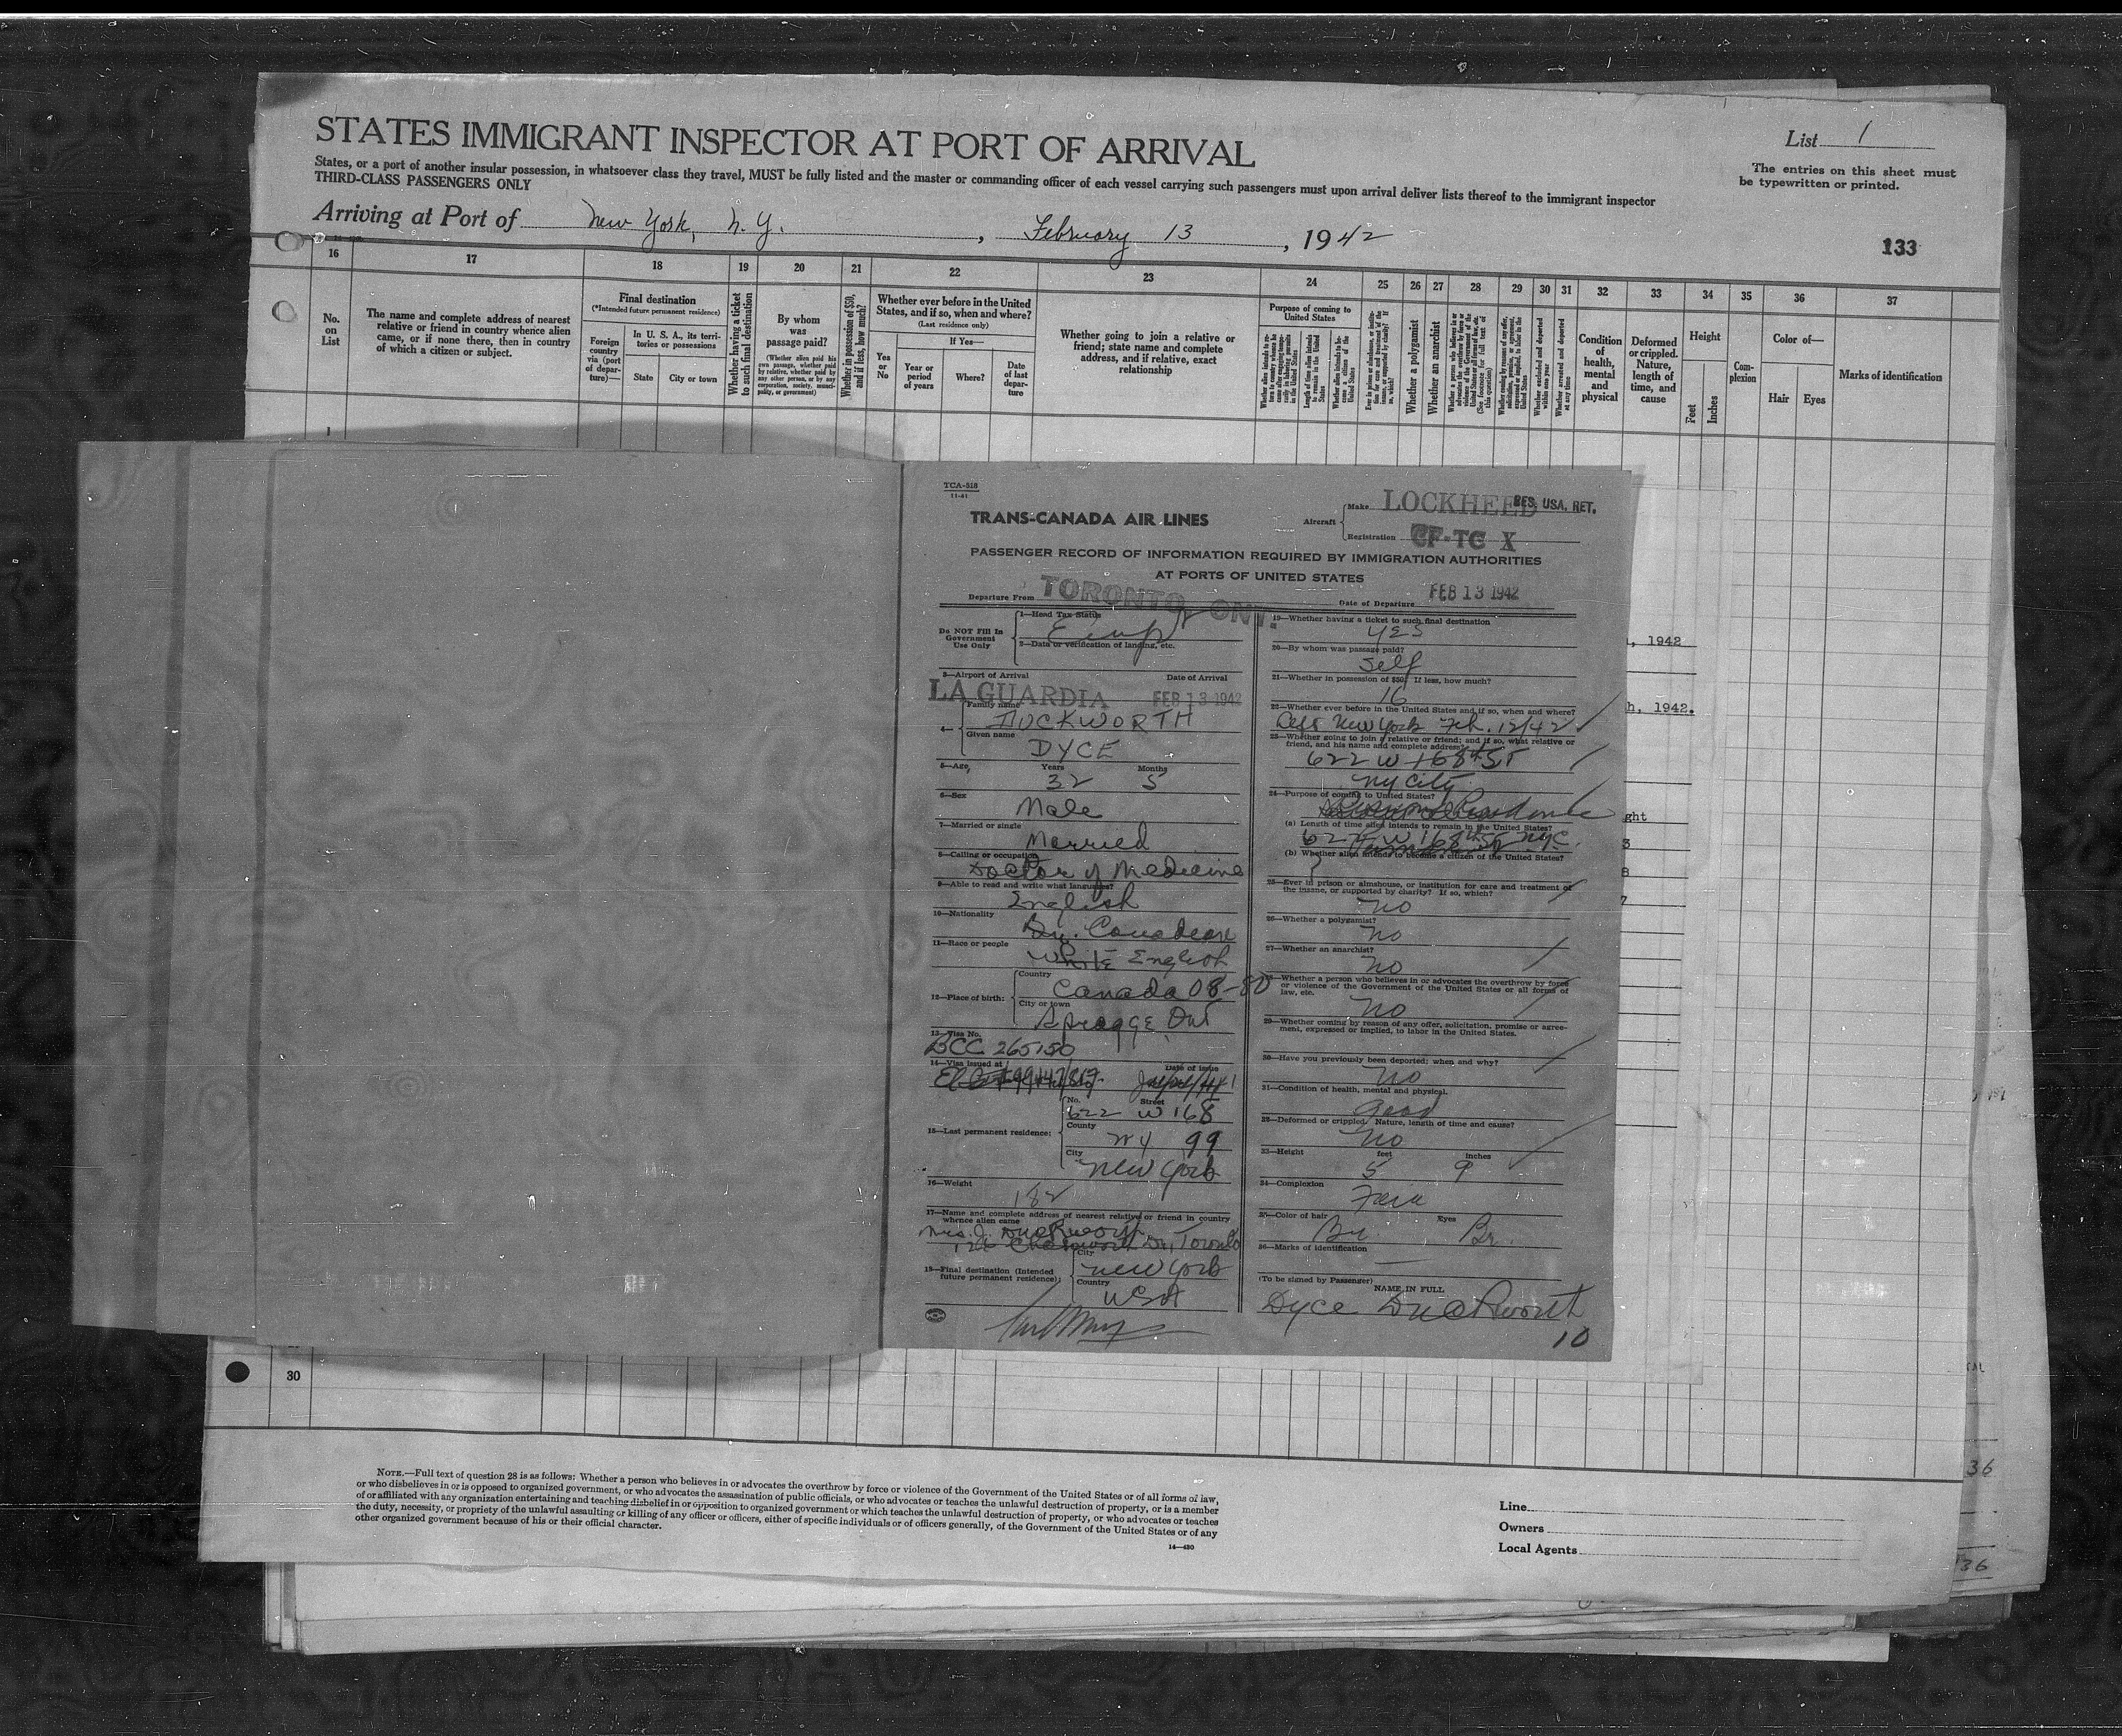 STATES IMMIGRANT INSPECTOR AT PORT OF ARRIVAL
List 1
The entries on this sheet must
be typewritten or printed.
States, or a port of another insular possession, in whatsoever class they travel, MUST be fully listed and the master or commanding officer of each vessel carrying such passengers must upon arrival deliver lists thereof to the immigrant inspector
THIRD-CLASS PASSENGERS ONLY
Arriving at Port of New York, N. Y. , February 13 , 1942
133
16 17 18 19 20 21 22 23 24 25 26 27 28 29 30 31 32 33 34 35 36 37
No. on List
The name and complete address of nearest relative or friend in country whence alien came, or if none there, then in country of which a citizen or subject.
Final destination
(*Intended future permanent residence)
Foreign country via (port of departure)—
In U. S. A., its territories or possessions
State
City or town
Whether having a ticket to such final destination
By whom was passage paid?
(Whether alien paid his own passage, whether paid by relative, whether paid by any other person, or by any corporation, society, municipality, or government)
Whether in possession of $50, and if less, how much?
Whether ever before in the United States, and if so, when and where?
(Last residence only)
Yes or No
If Yes—
Year or period of years
Where?
Date of last departure
Whether going to join a relative or friend; state name and complete address, and if relative, exact relationship
Purpose of coming to United States
Length of time alien intends to remain in the United States
Whether alien intends to become a citizen of the United States
Whether a polygamist
Whether an anarchist
Whether excluded and deported within one year
Whether arrested and deported at any time
Condition of health, mental and physical
Deformed or crippled. Nature, length of time, and cause
Height
Feet
Inches
Complexion
Color of—
Hair
Eyes
Marks of identification
1
TCA-518
11-41
TRANS-CANADA AIR LINES
Aircraft
Make LOCKHEED
RES. USA. RET.
Registration CF-TC X
PASSENGER RECORD OF INFORMATION REQUIRED BY IMMIGRATION AUTHORITIES
AT PORTS OF UNITED STATES
Departure From TORONTO, ONT.
Date of Departure FEB 13 1942
Do NOT Fill In
Government
Use Only
1—Head Tax Status
2—Data or verification of landing, etc.
3—Airport of Arrival
Date of Arrival
LA GUARDIA FEB 13 1942
4—
Family name
DUCKWORTH
Given name
DYCE
5—Age, Years Months
32 5
6—Sex
Male
7—Married or single
Married
8—Calling or occupation
Doctor of Medicine
9—Able to read and write what languages?
English
10—Nationality
Br. Canadian
11—Race or people
White English
12—Place of birth:
Country
Canada 08-80
City or town
Spragge Ont
13—Visa No.
BCC 265150
14—Visa issued at
Date of issue
15—Last permanent residence:
No. Street
622 W 168
County
NY 99
City
New York
16—Weight
182
17—Name and complete address of nearest relative or friend in country
whence alien came
Mrs. J. Duckworth
Dr, Toronto
18—Final destination (Intended
future permanent residence):
City
New York
Country
USA
19—Whether having a ticket to such final destination
YES
20—By whom was passage paid?
Self
21—Whether in possession of $50, If less, how much?
16
22—Whether ever before in the United States and if so, when and where?
Left New York Feb. 12/42
23—Whether going to join a relative or friend; and if so, what relative or
friend, and his name and complete address?
622 W 168th ST
NY City
24—Purpose of coming to United States?
(a) Length of time alien intends to remain in the United States?
W 168th St NYC.
(b) Whether alien intends to become a citizen of the United States?
25—Ever in prison or almshouse, or institution for care and treatment of
the insane, or supported by charity? If so, which?
NO
26—Whether a polygamist?
NO
27—Whether an anarchist?
NO
28—Whether a person who believes in or advocates the overthrow by force
or violence of the Government of the United States or all forms of
law, etc.
NO
29—Whether coming by reason of any offer, solicitation, promise or agree-
ment, expressed or implied, to labor in the United States.
30—Have you previously been deported; when and why?
NO
31—Condition of health, mental and physical.
Good
32—Deformed or crippled. Nature, length of time and cause?
NO
33—Height feet inches
5 9
34—Complexion
Fair
35—Color of hair Eyes
Br. Br.
36—Marks of identification
(To be signed by Passenger)
NAME IN FULL
Dyce Duckworth
10
, 1942
h, 1942.
ght
3
8
7
30
NOTE.—Full text of question 28 is as follows: Whether a person who believes in or advocates the overthrow by force or violence of the Government of the United States or of all forms of law,
or who disbelieves in or is opposed to organized government, or who advocates the assassination of public officials, or who advocates or teaches the unlawful destruction of property, or is a member
of or affiliated with any organization entertaining and teaching disbelief in or opposition to organized government or which teaches the unlawful destruction of property, or who advocates or teaches
the duty, necessity, or propriety of the unlawful assaulting or killing of any officer or officers, either of specific individuals or of officers generally, of the Government of the United States or of any
other organized government because of his or their official character.
14—430
Line
Owners
Local Agents
36
36